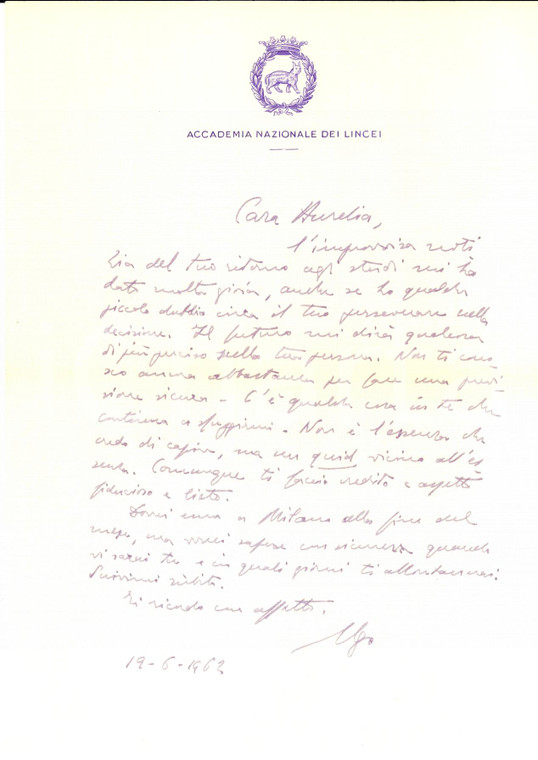 ACCADEMIA NAZIONALE DEI LINCEI
Cara Aurelia,
l'improvvisa noti
zia del tuo ritorno agli studi mi ha
dato molta gioia, anche se ho qualche
piccolo dubbio circa il tuo perseverare nella
decisione. Il futuro mi dirà qualcosa
di più preciso sulla tua persona. Non ti cono
sco ancora abbastanza per fare una previ
sione sicura - C'è qualche cosa in te che
continua a sfuggirmi - Non è l'essenza che
credo di capire, ma un quid vicino all'es
senza. Comunque ti faccio credito e aspetto
fiducioso e lieto.
Dovrei essere a Milano alla fine del
mese, ma vorrei sapere con sicurezza quando
vi sarai tu e in quali giorni ti allontanerai.
Scrivimi subito.
Ti ricordo con affetto.
Ugo
19-6-1962